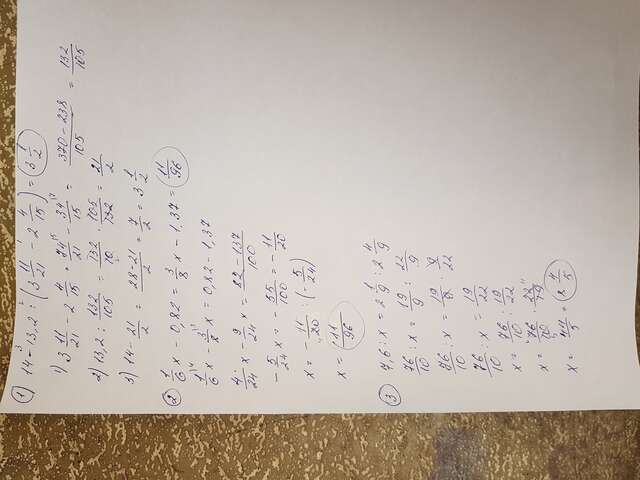 1) 14 - 13,2 : (3 11/21 - 2 4/15) = 3 1/2
1) 3 11/21 - 2 4/15 = 74/21 - 34/15 = 370-238/105 = 132/105
2) 13,2 : 132/105 = 132/10 · 105/132 = 21/2
3) 14 - 21/2 = 28-21/2 = 7/2 = 3 1/2
2 1/6 x - 0,82 = 3/8 x - 1,37 = 11/96
1/6 x - 3/8 x = 0,82 - 1,37
4/24 x - 9/24 x = 82-137/100
- 5/24 x = - 55/100 = - 11/20
x = - 11/20 : (- 5/24)
x = 11/96
3 7,6 : x = 2 1/9 : 2 4/9
76/10 : x = 19/9 : 22/9
76/10 : x = 19/9 · 9/22
76/10 : x = 19/22
x = 76/10 : 19/22
x = 76/10 · 22/19
x = 44/5 = 8 4/5